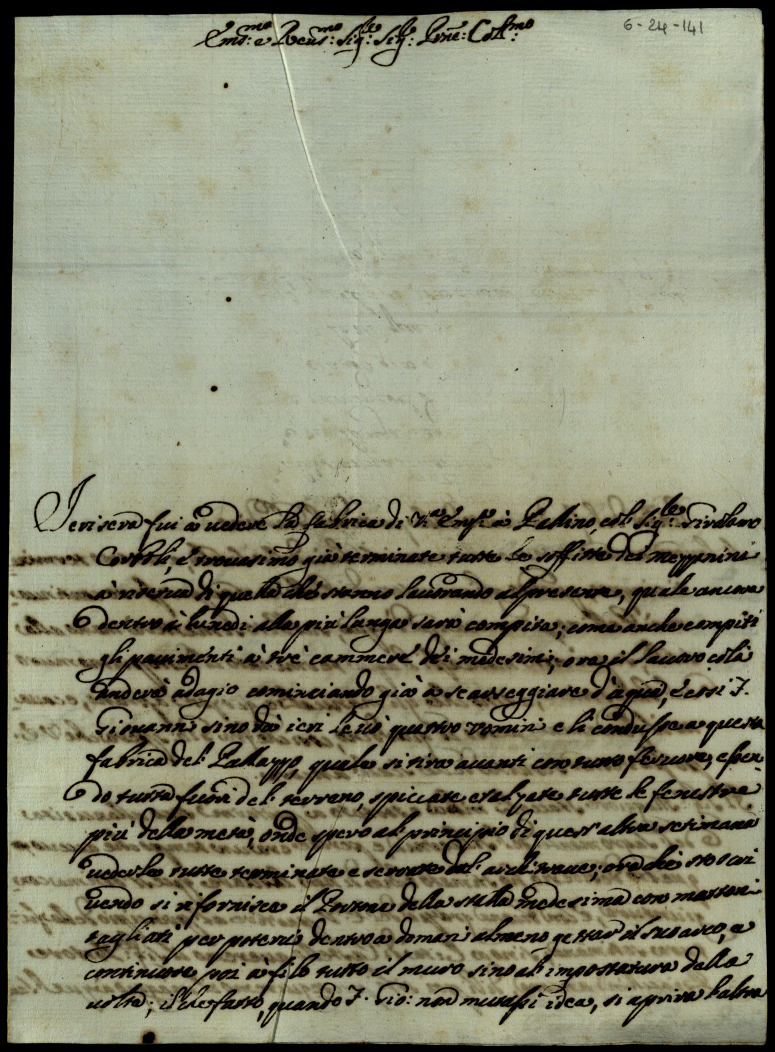 6-24-141
Em.mo e Reu.mo Sig.re Sig.r Prne: Col.mo
Ieri sera fui à uedere la fabrica di V.a Em.a à Pallino, col Sig.re Girolamo
Corboli, e trouassimo già terminate tutte le soffitte dei mezzanini
à riserua di quella che stanno laurando al presente, quale ancora
dentro à lunedi alla più lunga sarà compita; come anche compiti
gli pauimenti à trè cammere dei medesimi; ora il lauoro colà
anderà adagio cominciando già à scarseggiare d'aqua, e essi F.
Giouanni sino da ieri leuò quatro uomini e li condusse a questa
fabrica del Pallazzo, quale si tira auanti con tutto feruore, essen
do tutta fuori del terreno, spiccate e alzate tutte le fenestre
più della metà, onde spero al principio di quest'altra setimana
uederle tutte terminate e serrate dal architraue; ora che sto scri
uendo si rifornisce il Portone della stalla medesima con mattoni
tagliati per poterui dentro a domani almeno gettar il suo arco, e
continuare poi à filo tutto il muro sino al impostatura della
uolta; il che fatto, quando F. Gio: non mutassi idea, si apriua l'altra